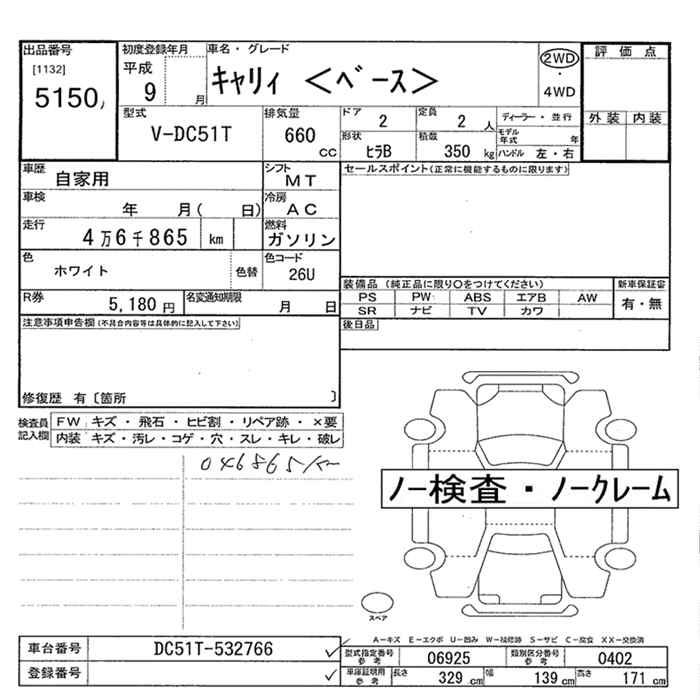 出品番号
[1132]
5150
初度登録年月
平成
9 月
車名・グレード
キャリィ <ベース>
2WD
・
4WD
評価点
外装 内装
型式
V-DC51T
排気量
660
CC
ドア
2
定員
2 人
ディーラー・並行
モデル年式 年
形状
ヒラB
積載
350 kg
ハンドル 左・右
車歴
自家用
シフト
MT
セールスポイント(正常に機能するものに限ります)
車検
年 月( 日)
冷房
AC
走行
4万6千865 km
燃料
ガソリン
色
ホワイト
色替
色コード
26U
装備品 (純正品に限り○をつけてください)
新車保証書
PS PW ABS エアB AW
有・無
SR ナビ TV カワ
R券
5,180 円
名変通知期限
月 日
後日品
注意事項申告欄(不具合内容等は具体的に記入して下さい)
修復歴 有〔箇所 〕
検査員
記入欄
FW キズ・飛石・ヒビ割・リペア跡・×要
内装 キズ・汚レ・コゲ・穴・スレ・キレ・破レ
ノー検査・ノークレーム
スペア
A-キズ E-エクボ U-凹み W-補修跡 S-サビ C-腐食 XX-交換済
車台番号
DC51T-532766
登録番号
型式指定番号
参考
06925
類別区分番号
参考
0402
車庫証明用
参考
長さ
329 cm
幅
139 cm
高さ
171 cm